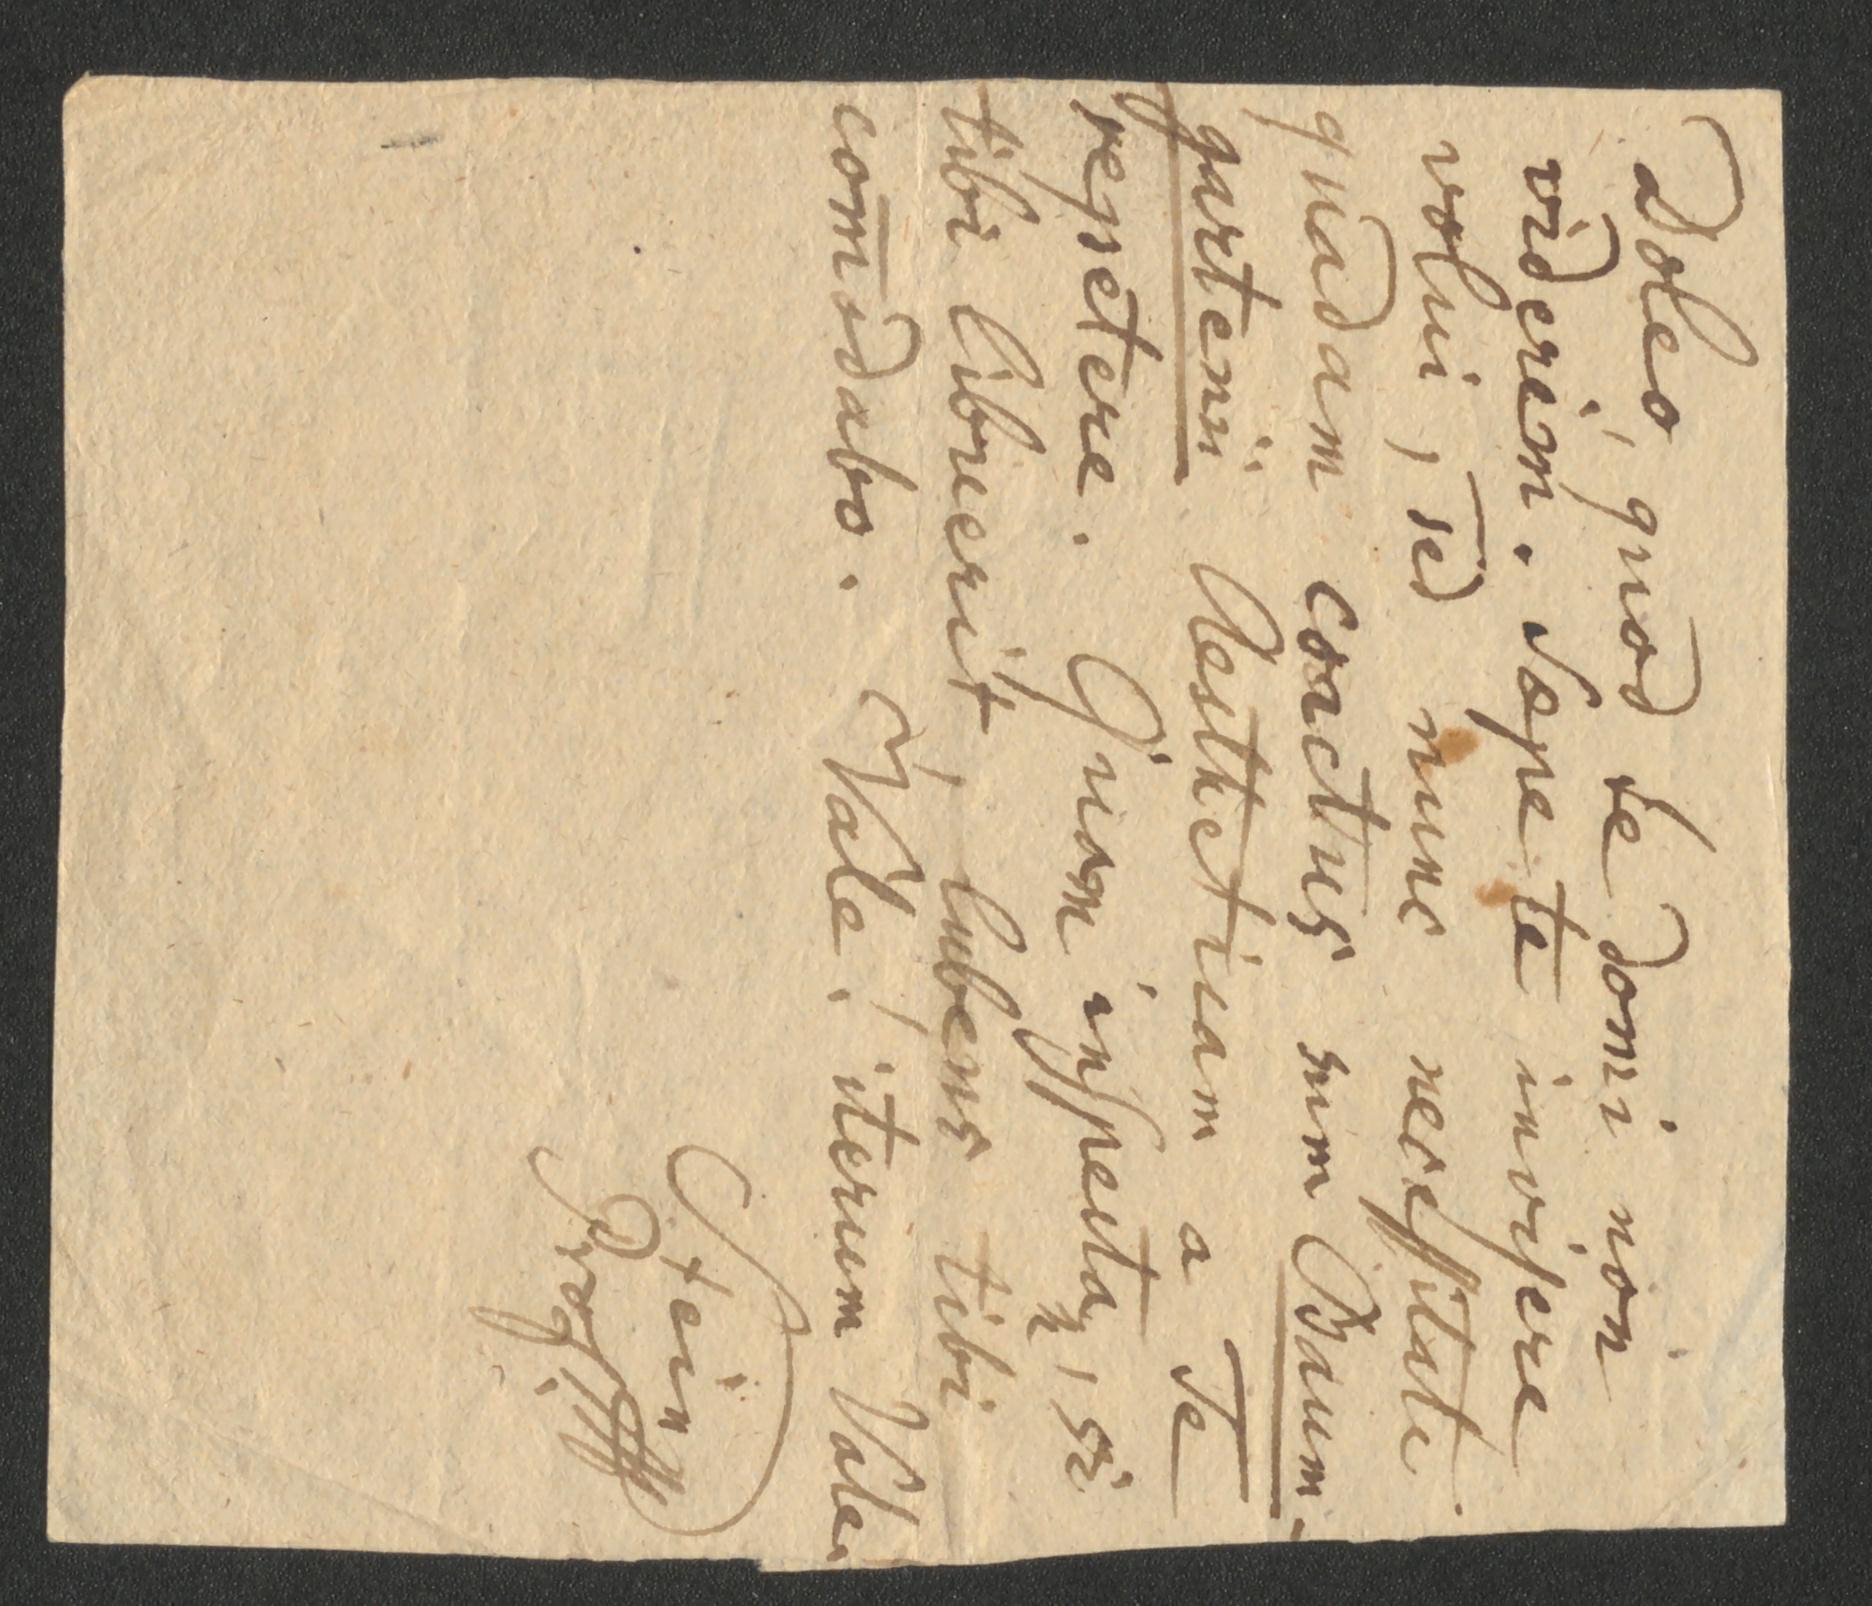 Doleo, quod te domi non
viderim. Sæpe te invisere
volui, sed nunc necessitate
quadam coactus sum Baum-
gartenii Aestheticam a Te
repetere. Quam inspecta, si
tibi libuerit, lubens tibi
com̄odabo. Vale! iterum Vale
Stein